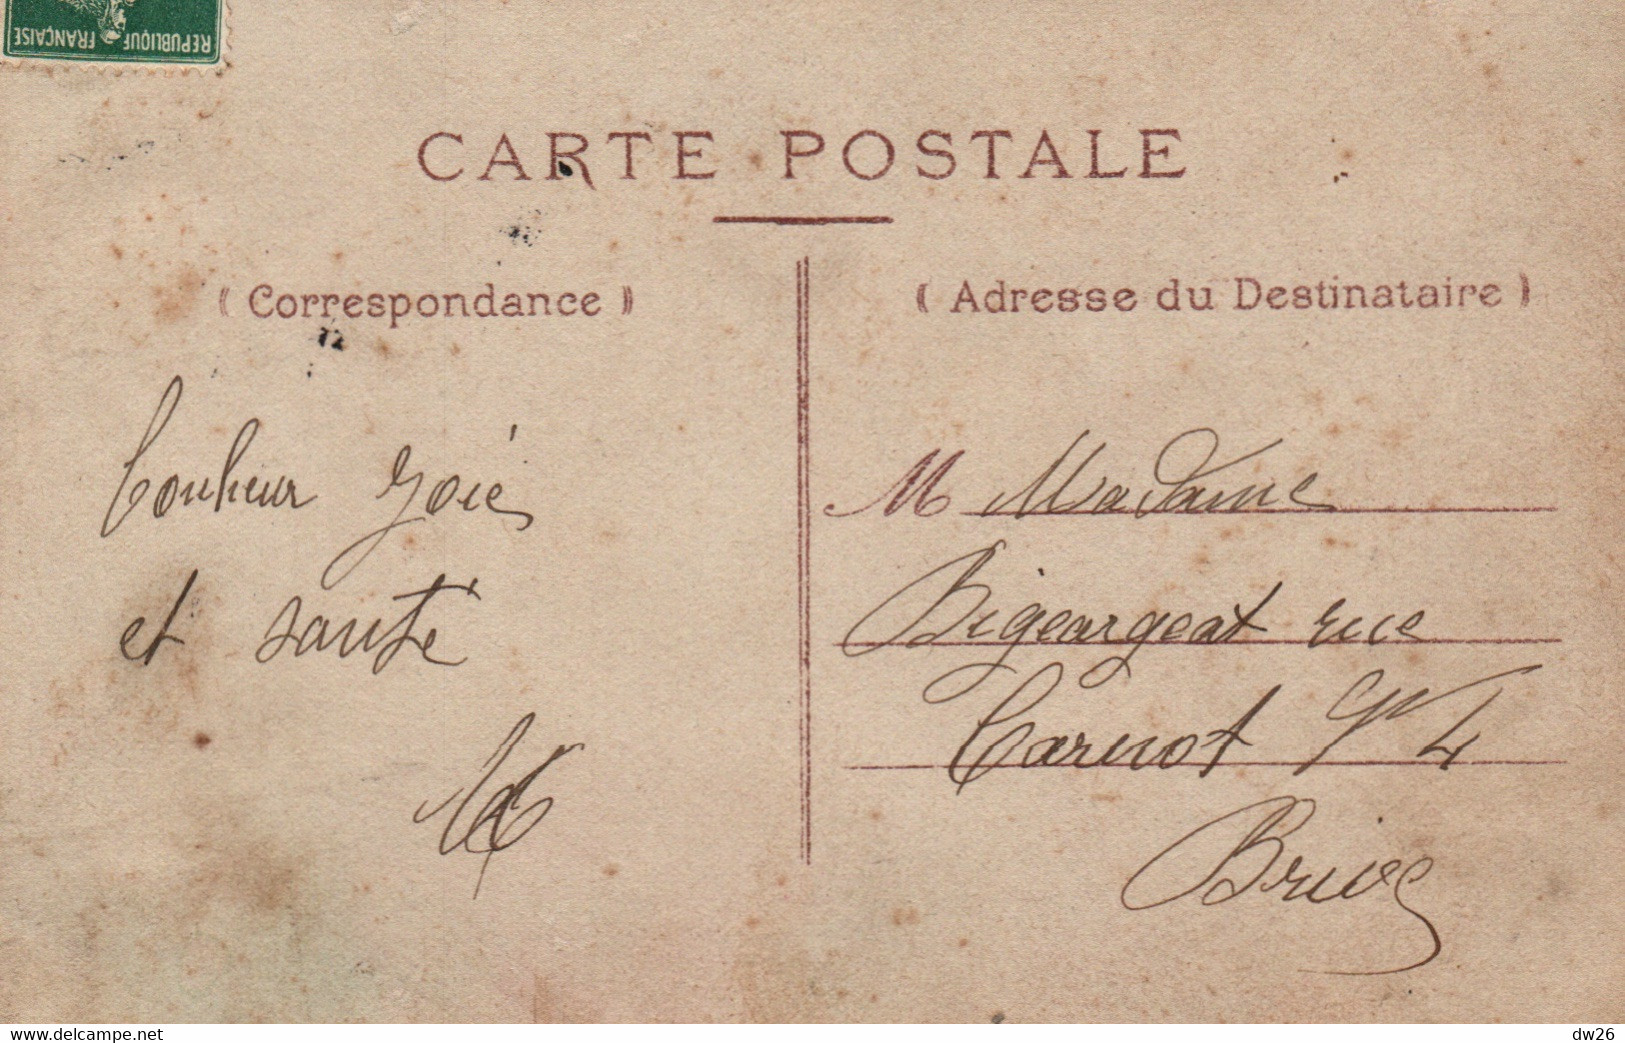 REPUBLIQUE FRANÇAISE
CARTE POSTALE
( Correspondance )
( Adresse du Destinataire )
bonheur joie
et santé
M Madame
Bigeargeat rue
Carnot
Brive
www.delcampe.net
dw26